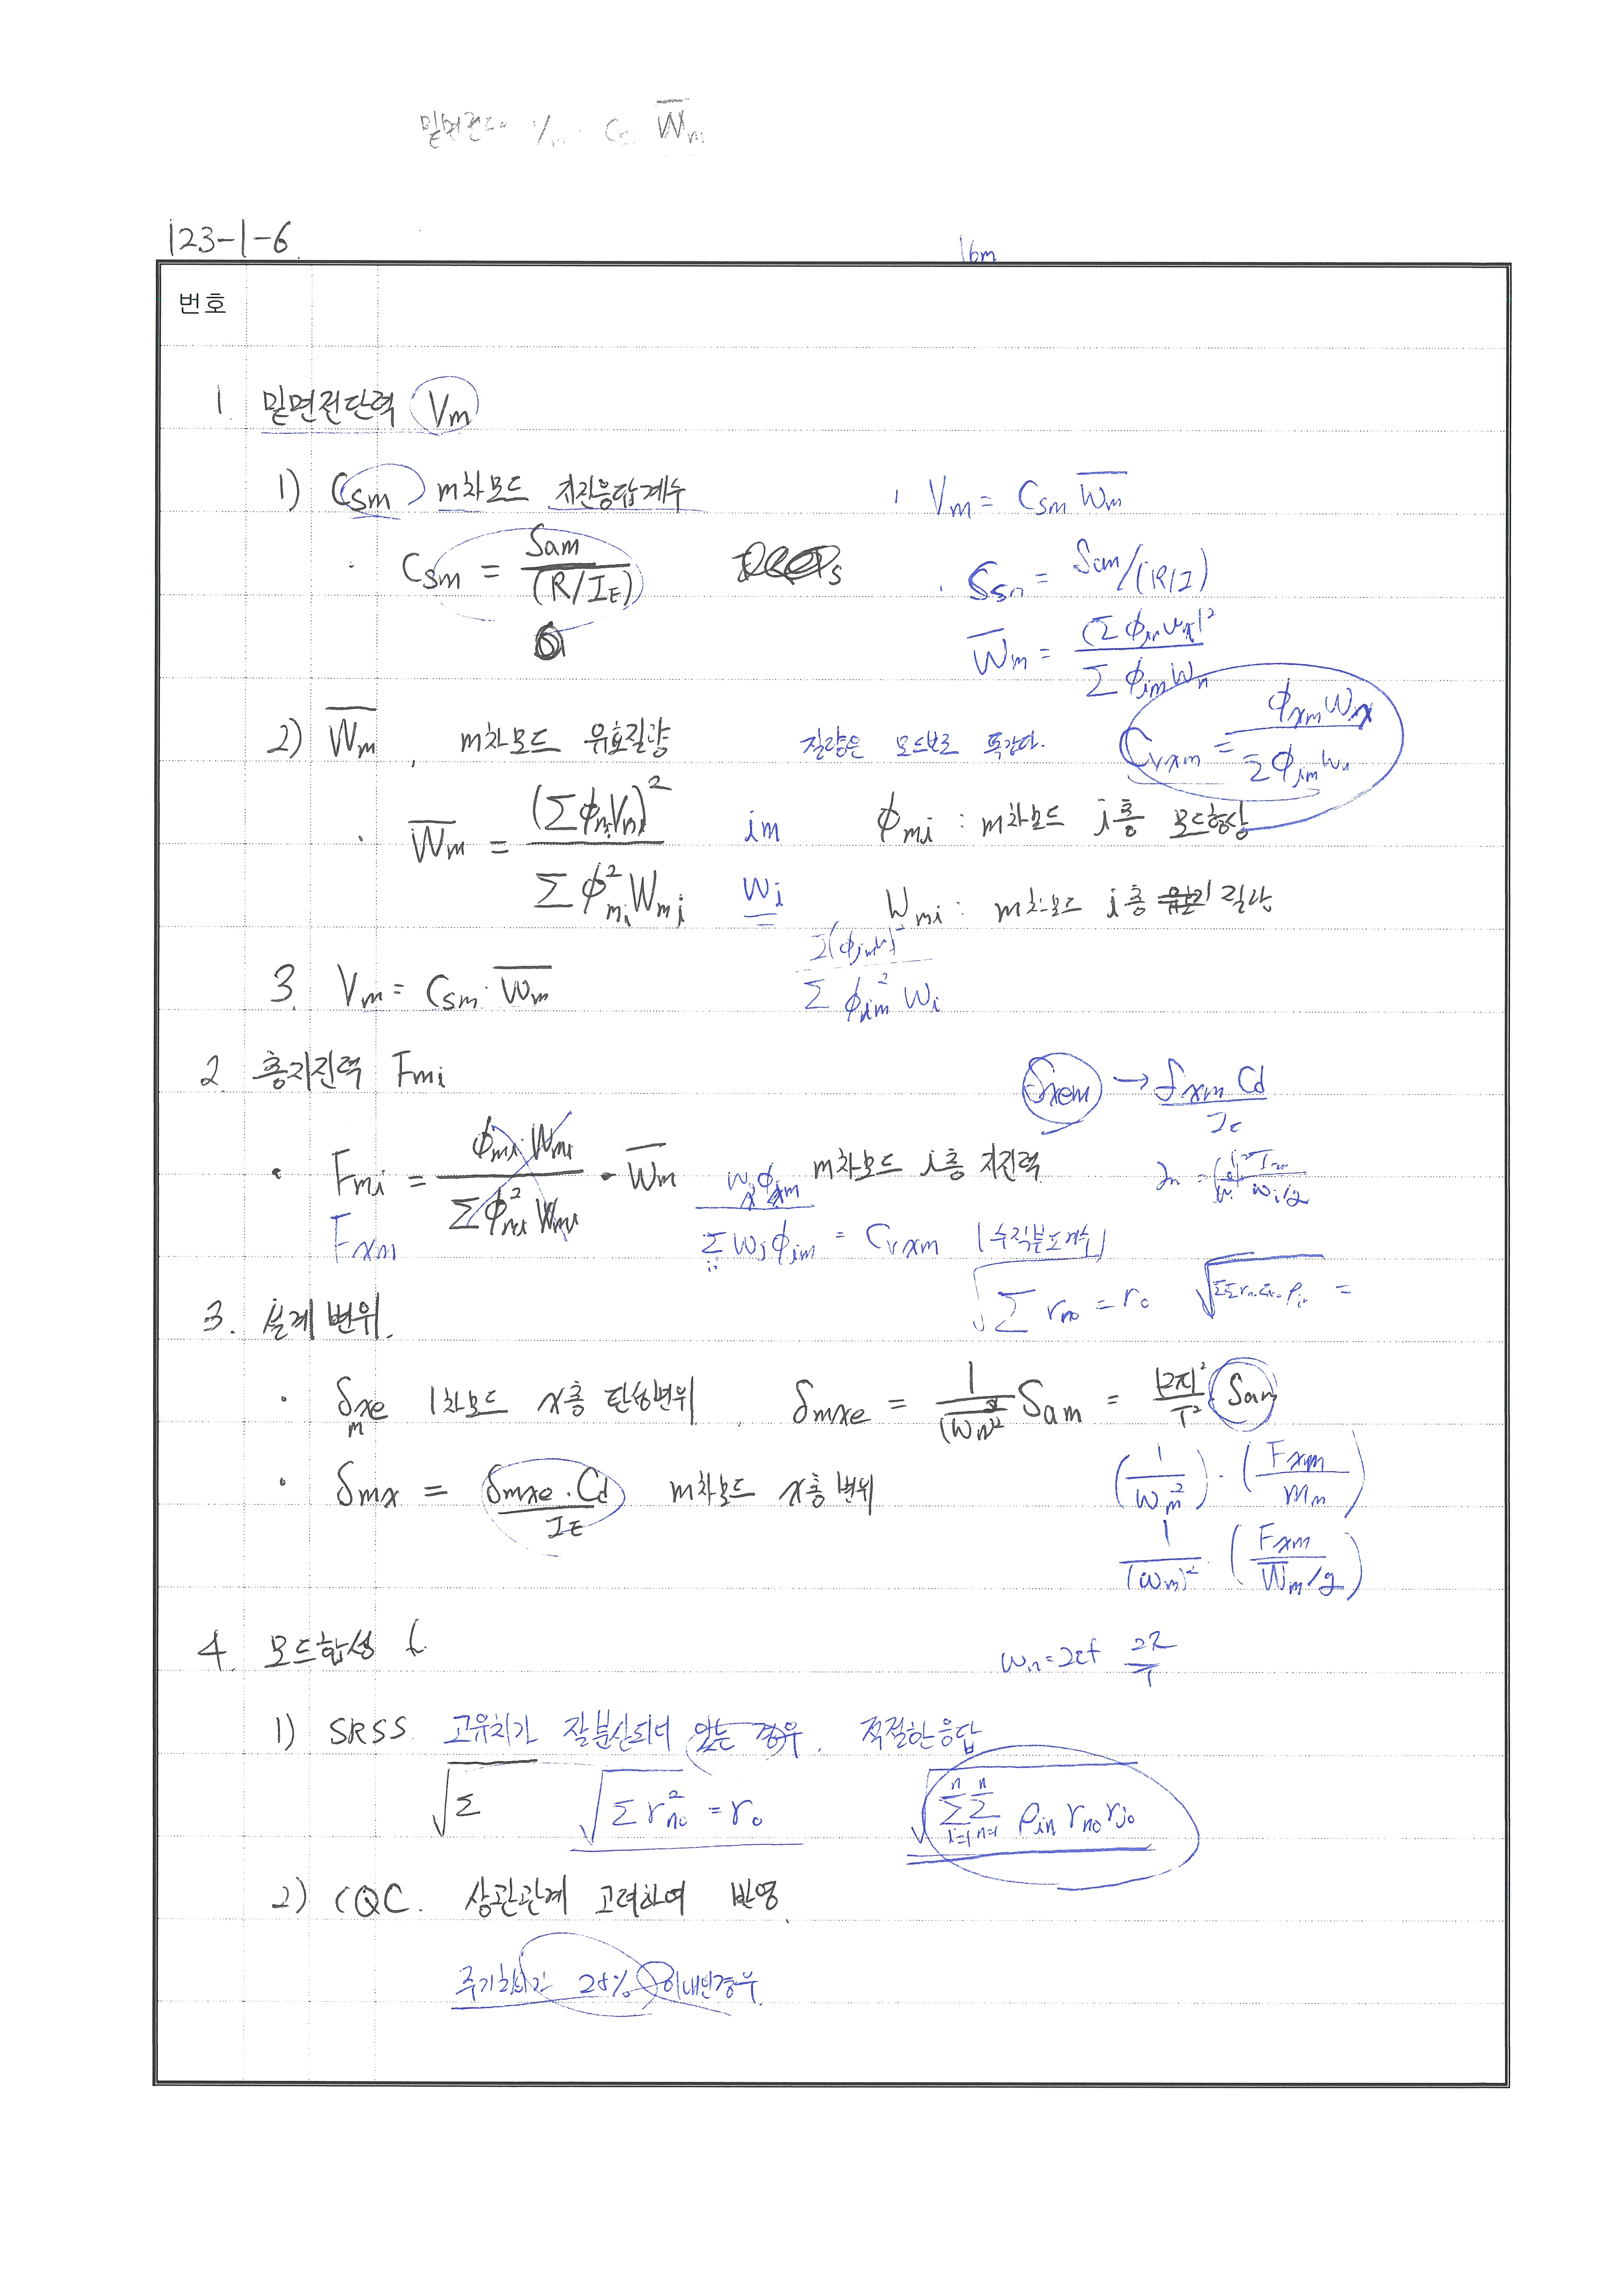 밑면전단 Vm = Cs \overline{W}m
123-1-6.
16m
번호
1. 밑면전단력 Vm
1) Csm m차모드 지진응답계수
· Vm = Csm \overline{Wm}
· Csm = Sam / (R/IE)
· Csm = Sam/(R/I)
\overline{W}m = (Σ ϕim wi)² / Σ ϕim Wn
2) \overline{Wm}, m차모드 유효질량
질량은 모드별로 똑같다.
Cvxm = ϕxm Wx / Σ ϕim Wn
· \overline{W}m = (Σ ϕmi Wmi)² / Σ ϕ²mi Wmi
im
Wi
ϕmi : m차모드 i층 모드형상
Wmi : m차모드 i층 질량
Σ(ϕim W)² / Σ ϕim² Wi
3. Vm = Csm · \overline{Wm}
2. 층지진력 Fmi
δxem → δxm Cd / Ie
· Fmi = ϕmi Wmi / Σ ϕ²mi Wmi · \overline{W}m
m차모드 i층 지진력
Fxm
Wx ϕxm / Σ Wi ϕim = Cvxm (수직분포계수)
√Σ rno = ro
3. 설계변위.
· δxe m 1차모드 x층 탄성변위. δmxe = 1/(Wn)² Sam = (2π)²/T² Sam
· δmx = δmxe · Cd / IE m차모드 x층 변위
(1/Wm²) · (Fxm/Mm)
1/(Wm)² · (Fxm / \overline{W}m/g)
4. 모드합성
Wn = 2πf 2π/T
1) SRSS. 고유치가 잘분산되어 있는 경우. 적절한응답
√Σ √Σ rno² = ro √Σ(i=1, n) Σ(n=1, n) ρin rno rjo
2) CQC. 상관관계 고려하여 반영.
주기차이가 25% 이내인경우.